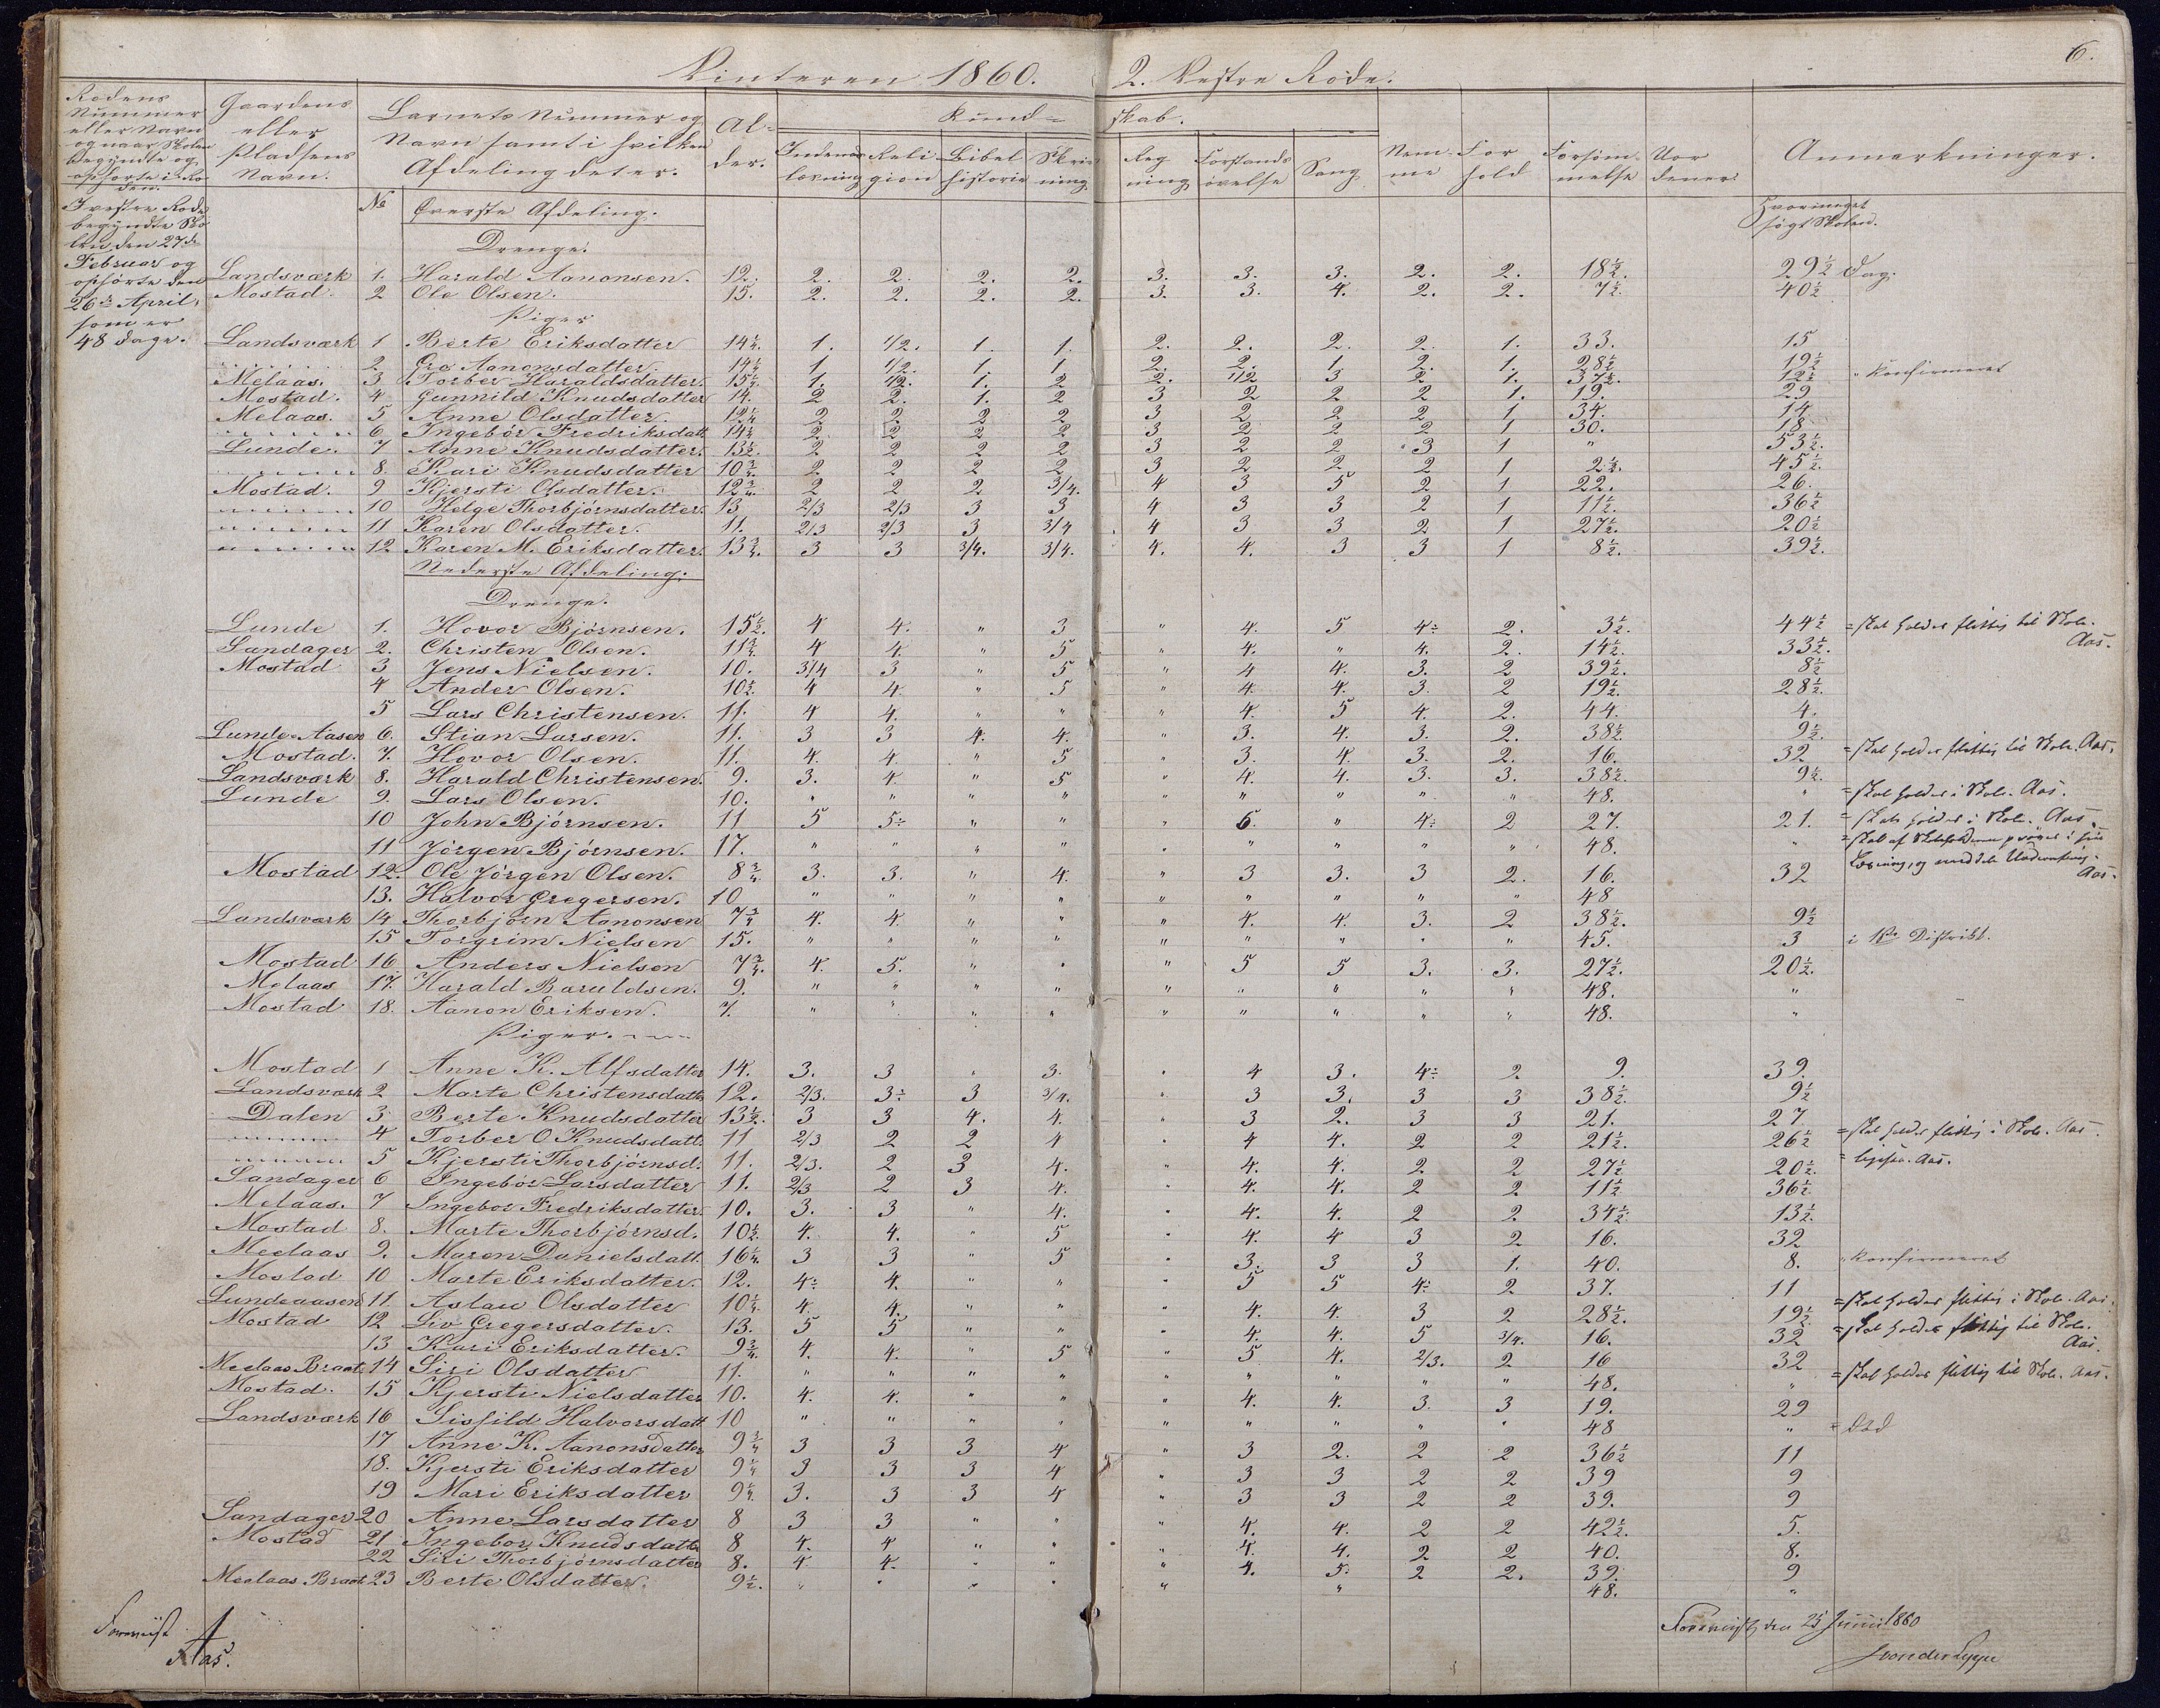 6.
Vinteren 1860. 2. Vestre Rode.
Rodens Nummer eller Navn og naar Skolen begyndte og ophørte i Roden.
Gaardens eller Pladsens Navn.
Barnets Nummer og Navn samt i hvilken Afdeling det er.
Alder.
Kundskab.
Indenadlæsning Religion Bibelhistorie Skrivning Regning Forstandsøvelse Sang
Nemme Forhold Forsømmelse Anmærkninger.
I vestre Rode
begyndte Sko
len den 27de
Februar og
ophørte den
26de April,
som er
48 Dage.
№ Øverste Afdeling. Hvormeget søgt Skolen.
Drenge.
Landsværk 1. Harald Aanonsen. 12. 2. 2. 2. 2. 3. 3. 3. 2. 2. 18½. 29½ Dag.
Mostad. 2 Ole Olsen. 15. 2. 2. 2. 2. 3. 3. 4. 2. 2. 7½. 40½
Piger
Landsværk 1 Berte Eriksdatter 14¼. 1. 1/2. 1. 1. 2. 2. 2. 2. 1. 33. 15
" 2. Gro Aanonsdatter. 14¼ 1 1/2. 1. 1 2. 2. 1 2. 1. 28½ 19½
Melaas. 3 Torber Haraldsdatter. 15½. 1. 1/2. 1. 2 2. 1/2 3 2 1. 37½. 12½ " Konfirmeret
Mostad. 4 Gunnild Knudsdatter 14. 2 2. 1. 2 3 2 2 2 1. 19. 29
Melaas. 5 Anne Olsdatter. 12¼ 2 2 2 2 3 2 2 2 1 34. 14
" 6 Ingebór Fredriksdatt. 14¼ 2 2 2 2 3 2 2 2 1 30. 18
Lunde. 7 Anne Knudsdatter. 13½. 2 2 2 2 3 2 2 3 1 " 53½.
" 8. Kari Knudsdatter 10¾ 2 2 2 2 3 2 2 2 1 2½. 45½.
Mostad. 9 Kjersti Olsdatter. 12¾. 2 2 2 3/4. 4 3 5 2 1 22. 26.
" 10 Helge Thorbjørnsdatter. 13 2/3 2/3 3 3 4 3 3 2 1 11½. 36½
" 11 Karen Olsdatter. 11. 2/3 2/3 3 3/4 4 3 3 2 1 27½. 20½
" 12 Karen M. Eriksdatter. 13¾. 3 3 3/4. 3/4. 4. 4. 3 3 1 8½. 39½.
Nederste Afdeling.
Drenge.
Lunde 1. Hovor Bjørnsen. 15½. 4 4. " 3 " 4. 5 4÷ 2. 3½. 44½ = skal holdes flittig til Skole. Aas.
Sandager 2. Christen Olsen. 11¾. 4 4 " 5 " 4. " 4. 2. 14½. 33½.
Mostad 3 Jens Nielsen. 10. 3/4 3 " 5 " 4 4. 3. 2 39½. 8½
4 Ander Olsen. 10½. 4 4. " 5 " 4. 4. 3. 2 19½. 28½.
5 Lars Christensen. 11. 4 4. " " " 4. 5 4. 2. 44. 4.
Lunde-Aasen 6. Stian Larsen. 11. 3 3 4. 4. " 3. 4. 3. 2. 38½ 9½.
Mostad. 7. Hovor Olsen. 11. 4. 4. " 5 " 3. 4. 3. 2. 16. 32 = skal holdes flittig til Skole. Aas.
Landsværk 8. Harald Christensen. 9. 3. 4. " 5 " 4. 4. 3. 3. 38½. 9½.
Lunde 9. Lars Olsen. 10. " " " " " " " " " 48. " = skal holdes i Skole. Aas.
10 John Bjørnsen. 11 5 5÷ " " " 6. " 4÷ 2 27. 21. = skal holdes i Skole. Aas.
11 Jørgen Bjørnsen. 17. " " " " " " " " " 48. " = skal af prøves i sin Læsning, og meddele Underretning. Aas.
Mostad 12. Ole Jörgen Olsen. 8¾. 3. 3. " 4. " 3 3. 3 2. 16. 32
13. Halvor Gregersen. 10 " " " " " " " " " 48
Landsværk 14. Thorbjørn Aanonsen 7¾ 4. 4. " " " 4. 4. 3. 2 38½. 9½
15 Torgrim Nielsen 15. " " " " " " " " " 45. 3 i 1ste Distrikt.
Mostad 16. Anders Nielsen 7¾. 4. 5. " " " 5 5 3. 3. 27½. 20½.
Melaas 17. Harald Baruldsen. 9. " " " " " " " " " 48. "
Mostad 18. Aanon Eriksen. 7. " " " " " " " " " 48. "
Piger.
Mostad 1 Anne K. Alfsdatter 14. 3. 3 " 3. " 4 3. 4÷ 2. 9. 39.
Landsværk 2 Marte Christensdatt. 12. 2/3. 3÷ 3 3/4. " 3 3. 3 3 38½. 9½
Dalen 3 Berte Knudsdatter 13½. 3 3 4. 4. " 3 2. 3 3 21. 27
" 4 Torber O. Knudsdatt. 11 2/3 2 2 4 " 4 4. 2 2 21½. 26½ = skal holdes flittig i Skole. Aas.
" 5 Kjersti Thorbjørnsd. 11. 2/3. 2 3 4. " 4. 4. 2 2 27½ 20½. = ligesaa. Aas.
Sandager 6 Ingebor Larsdatter 11. 2/3 2 3 4. " 4. 4. 2 2 11½ 36½
Melaas. 7 Ingebor Fredriksdatter. 10. 3. 3 " 4. " 4. 4. 2 2 34½ 13½.
Mostad 8. Marte Thorbjörnsd. 10½. 4. 4. " 5 " 4 4 3 2 16. 32
Meelaas 9. Maren Danielsdatt. 16¼ 3 3 " 5 " 3. 3 3 1. 40. 8. " Konfirmeret
Mostad 10 Marte Eriksdatter. 12. 4÷ 4. " " " 5 5 4÷ 2 37. 11
Lundeaasen 11. Aslau Olsdatter 10¼. 4. 4. " " " 4. 4. 3 2 28½. 19½ = skal holdes flittig i Skole. Aas.
Mostad 12 Liv Gregersdatter. 13. 5 5 " " " 4. 4. 5 3/4. 16. 32 = skal holdes flittig til Skole. Aas.
13 Kari Eriksdatter. 9¾. 4. 4. " 5 " 5 4. 2/3. 2 16 32
Meelaas Braat. 14 Siri Olsdatter 11. " " " " " " " " " 48. " = skal holdes flittig til Skole. Aas.
Mostad. 15 Kjersti Nielsdatter 10. 4. 4. " " " 4. 4. 3. 3 19. 29
Landsværk 16 Sisfild Halvorsdatt 10 " " " " " " " " " 48 " = død
17 Anne K. Aanonsdatter 9¾ 3 3 3 4 " 3 2. 2 2 36½ 11
18. Kjersti Eriksdatter 9¼ 3 3 3 4 " 3 3 2 2 39 9
19 Mari Eriksdatter 9¼. 3. 3 3 4 " 3 3 2 2 39. 9
Sandager 20 Anne Larsdatter 8 3 3 " " " 4. 4. 2 2 42½. 5.
Mostad 21 Ingebor Knudsdatt. 8 4. 4 " " " 4. 4. 2 2 40. 8.
22 Siri Thorbjørnsdatter 8. 4 4. " " " 4. 5. 2 2. 39. 9
Meelaas Braat 23 Berte Olsdatter. 9½. " " " " " " 48. "
Foreviist
Aas.
Foreviist, den 25 Junii 1860